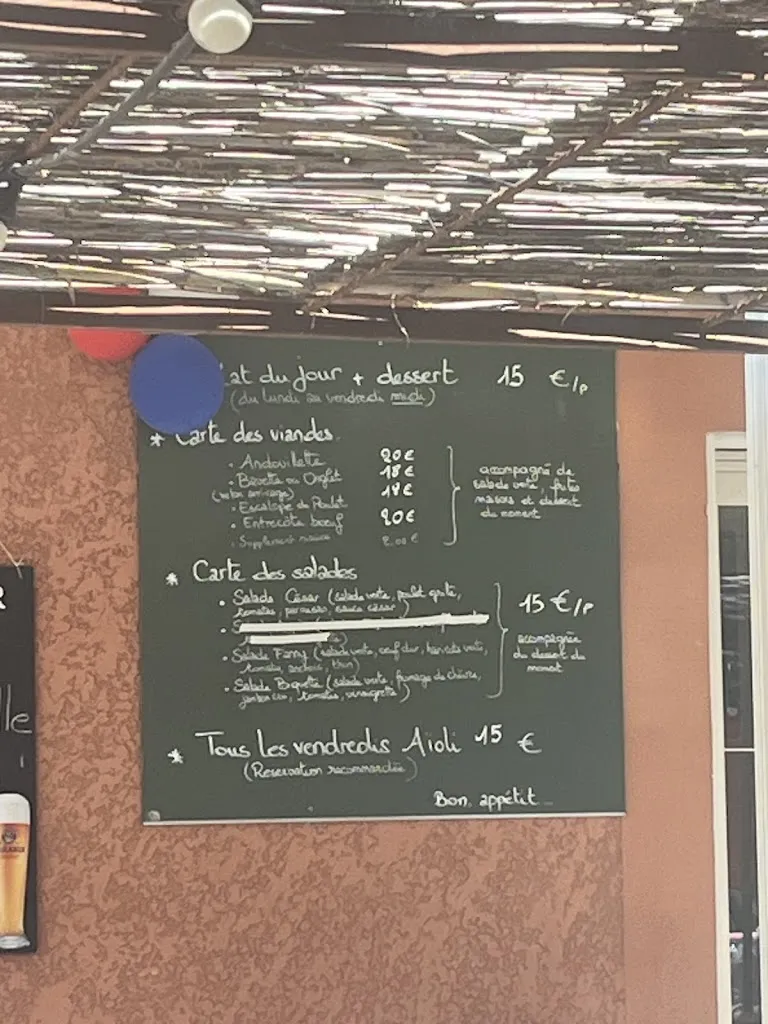 lat du jour + dessert 15 €/p
(du lundi au vendredi midi)
* Carte des viandes
. Andouillette 20€
. Bavette ou Onglet 18€
(selon arrivage)
. Escalope de Poulet 14€
. Entrecôte boeuf 20€
. Supplément sauce 2.00€
accompagné de
salade verte, frites
maisons et dessert
du moment
* Carte des salades
. Salade César (salade verte, poulet grillé,
tomates, parmesan, sauce césar)
. Salade Fanny (salade verte, oeuf dur, haricots verts,
tomate, anchois, thon)
. Salade Biquette (salade verte, fromage de chèvre,
jambon cru, tomates, vinaigrette)
15 €/p
accompagnée
du dessert du
moment
* Tous les vendredis Aïoli 15 €
(Reservation recommandée)
Bon appétit...
R
lle